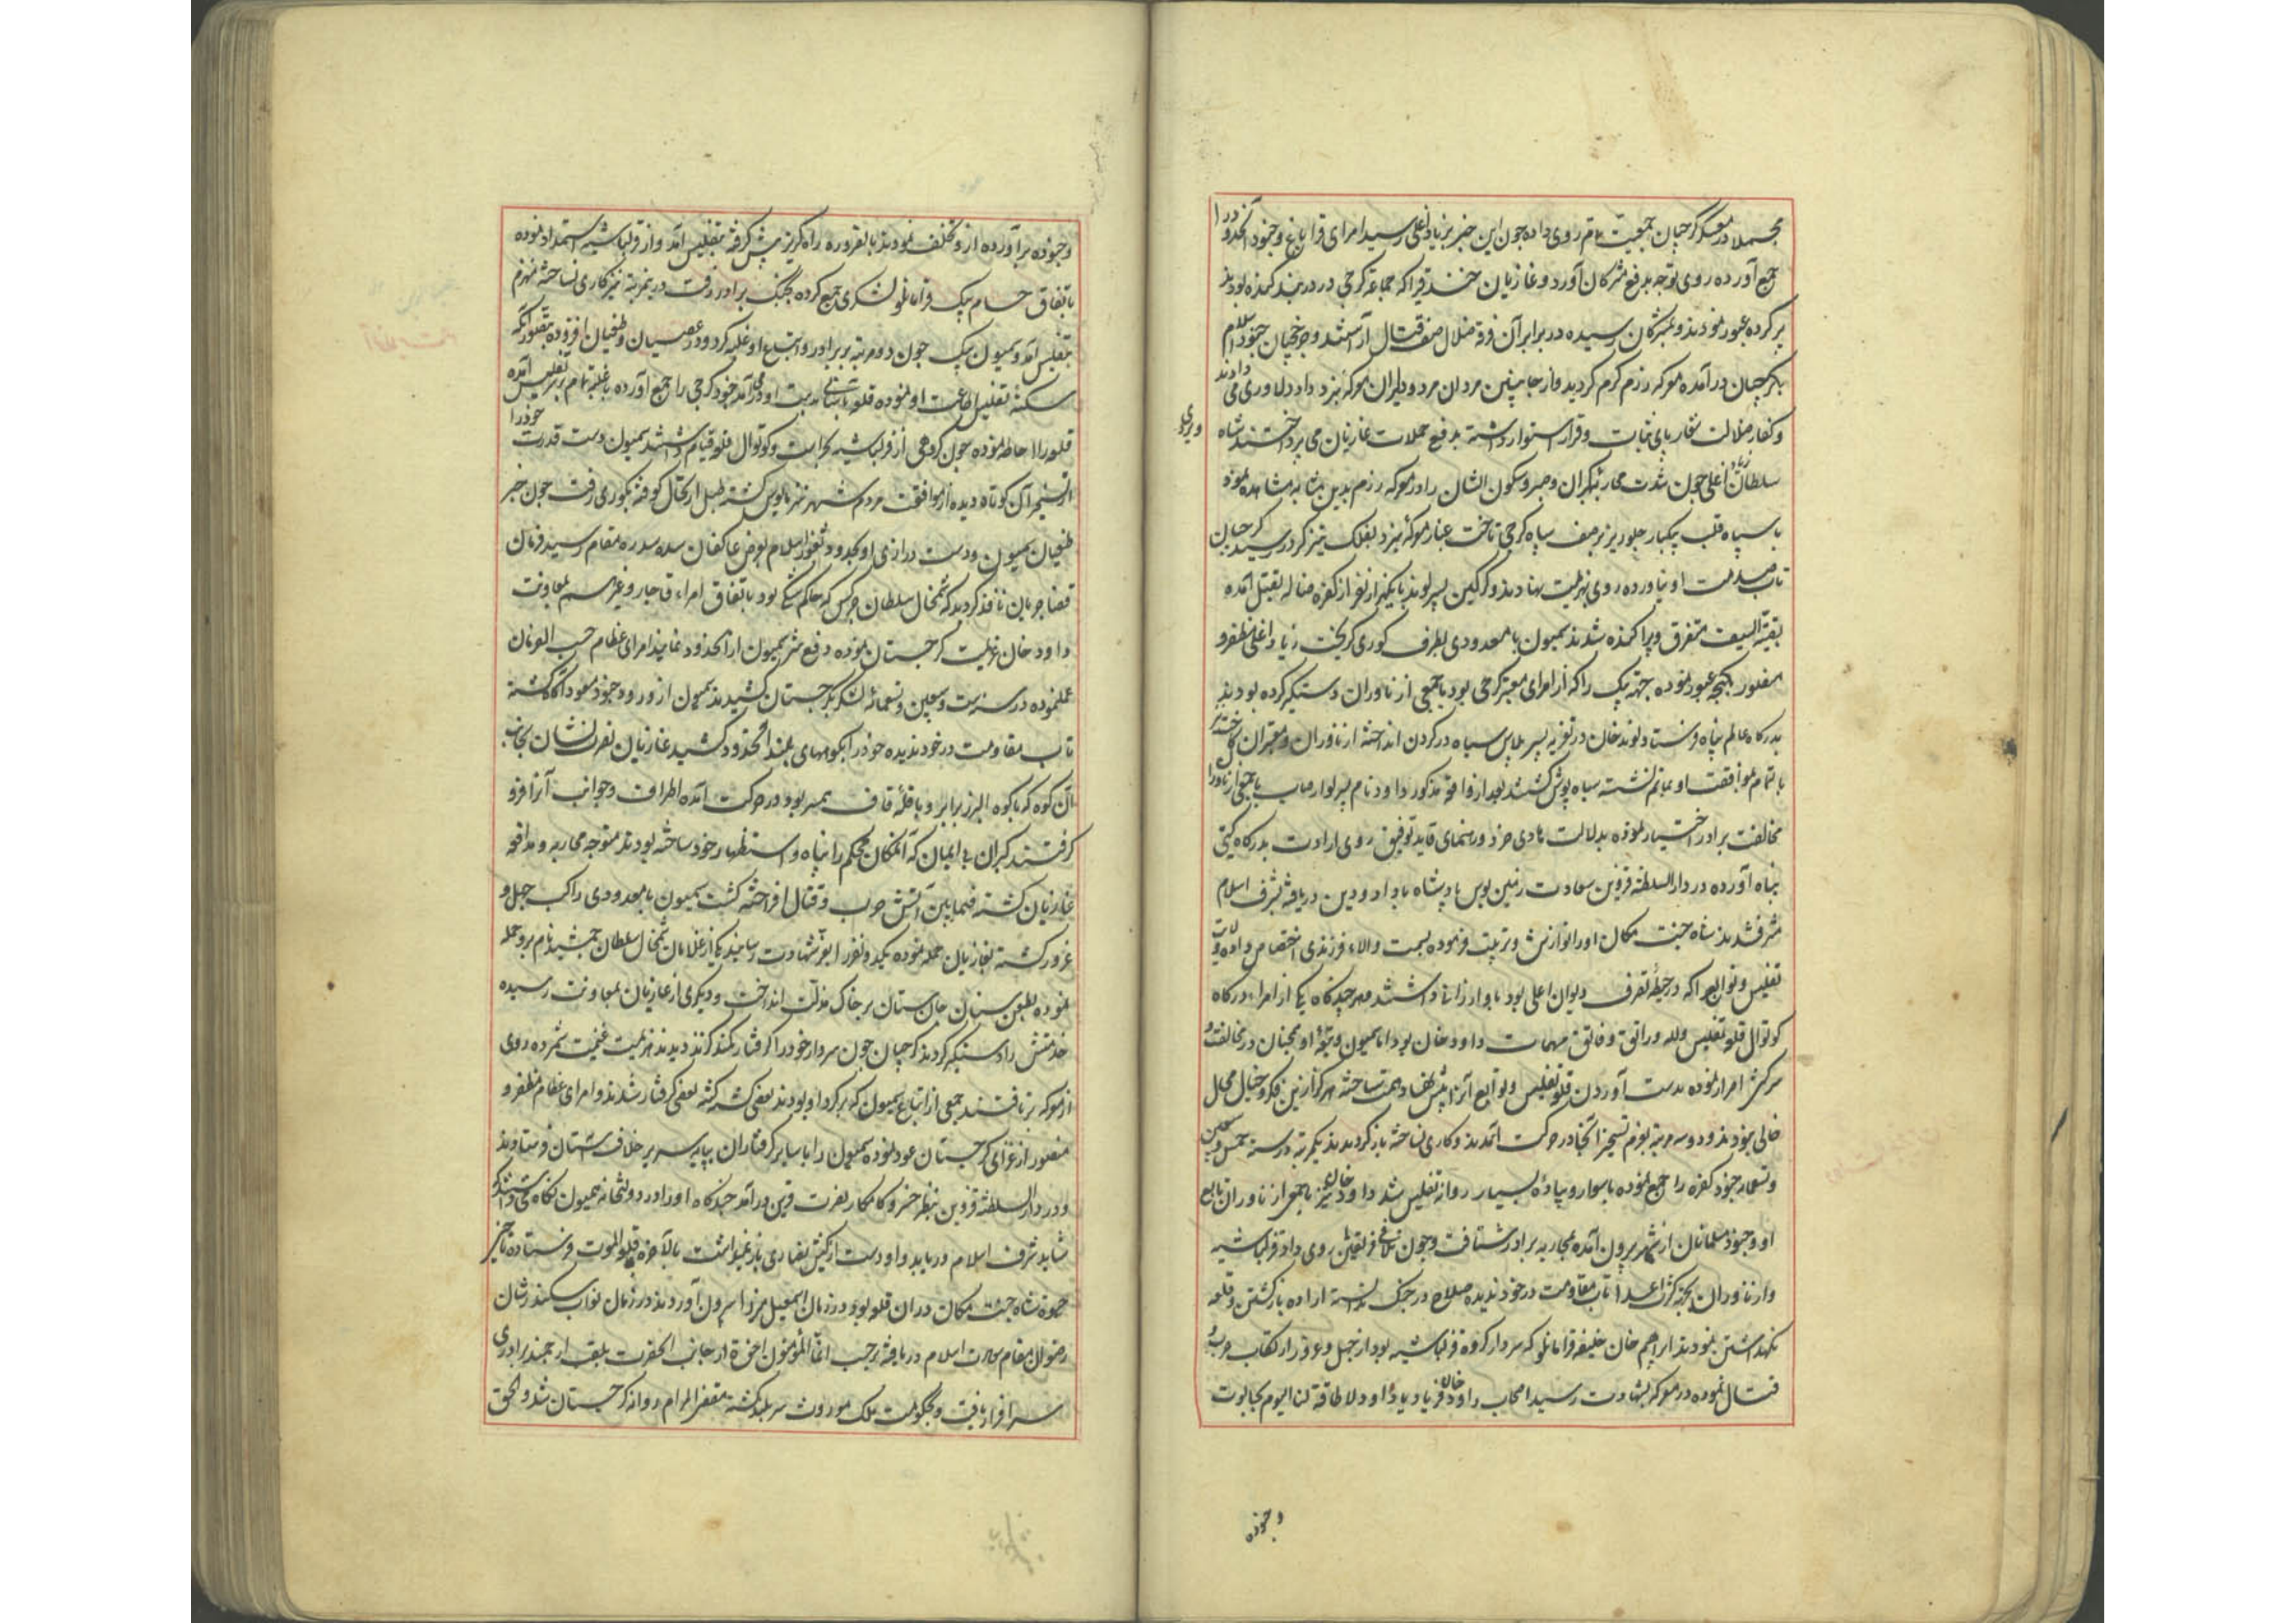 مجملا در معسکر گرجیان جمعیت تمام روی داده چون این خبر بزیاد اغلی رسید امرای قراباغ و جنود آنحدود را
جمع آورده روی توجه بدفع مشرکان آورد و غازیان خندقی را که جماعه گرجی در دربند کنده بودند
پر کرده عبور نمودند و بمشرکان رسیده در برابر آن فرقه ضلال صف قتال آراستند و چرخچیان جنود اسلام
با گرجیان درآمده معرکه رزم گرم گردید و از جانبین مردان مرد و دلیران معرکه نبرد داد دلاوری می دادند
و کفار ضلالت شعار پای ثبات و قرار استوار داشته بدفع حملات غازیان می پرداختند شاه
ویردی
سلطان زیاد اغلی چون شدت محاربه گبران و صبر و سکون ایشان را در معرکه رزم بدین مثابه مشاهده نمود
با سپاه قلب یکبار جلو ریز بر صف سپاه گرجی تاخت غبار معرکه نبرد بفلک تیز گرد رسید گرجیان
تاب صدمت او نیاورده روی بهزیمت نهادند و گرگین پسر لوند با یکهزار نفر از کفره ضاله بقتل آمده
بقیة السیف متفرق و پراکنده شدند سمیون با معدودی بطرف کوری گریخت زیاد اغلی مظفر و
منصور بگنجه عبور نموده جهته بیک را که از امرای معتبر گرجی بود با جمعی از ناوران دستگیر کرده بودند
بدرگاه عالم پناه فرستاد لوند خان در تعزیه پسر پلاس سیاه در گردن انداخته ازناوران و معتبران کاخت
بالتمام بموافقت او بماتم نشسته سیاه پوش گشتند بعد از واقعه مذکور داود نام پسر لوارصاب با جمعی ازناوران
مخالفت برادر اختیار نموده بدلالت هادی خرد و رهنمای قاید توفیق روی ارادت بدرگاه گیتی
پناه آورده در دار السلطنه قزوین سعادت زمین بوس پادشاه با داد و دین دریافته بشرف اسلام
مشرف شد شاه جنت مکان او را نوازش و تربیت فرموده بسمت والاء فرزندی اختصاص داده ولایت
تفلیس و توابع را که در حیطه تصرف دیوان اعلی بود باو ارزانی داشتند هر چندگاه یکی از امراء درگاه
کوتوال قلعه تفلیس و لله و راتق و فاتق مهمات داود خان بود اما سمیون و تبعه او همچنان در مخالفت و
سرکشی اصرار نموده بدست آوردن قلعه تفلیس و توابع آنرا پیش نهاد همت ساخته هرگز ازین فکر و خیال محال
خالی نبودند و دو سه مرتبه بعزم تسخیر آنجا در حرکت آمدند و کاری نساخته باز گردیدند یکمرتبه در سنه خمس و سبعین
و تسعمائه جنود کفره را جمع نموده با سوار و پیاده بسیار روانه تفلیس شد داود خان نیز با جمعی از ناوران تابع
او و جنود مسلمانان از شهر بیرون آمده بمحاربه برادر شتافت و چون تلاقی فریقین روی داد قزلباشیه
و ازناوران بجهة کثرت اعدا تاب مقاومت در خود ندیده صلاح در جنگ ندانسته اراده بازگشتن و قلعه
نگهداشتن نمودند ابراهیم خان خلیفه قرامانلو که سردار گروه قزلباشیه بود از جهل و غرور ارتکاب حرب و
قتال نموده در معرکه بشهادت رسید اصحاب داود خان فریاد یا داود لا طاقة لنا الیوم بجالوت
وجنوده
وجنوده برآورده از و تخلف نمودند بالضروره راه گریز پیش گرفته بتفلیس آمد و از قزلباشیه استمداد نموده
باتفاق حسام بیک قرامانلو لشکری جمع کرده بجنگ برادر رفت درین مرتبه نیز کاری نساخته منهزم
بتفلیس آمد و سمیون بیک چون دو مرتبه بر برادر و اتباع او غلبه کرد و در عصیان و طغیان افزوده بتصور آنکه
سکنه تفلیس اطاعت او نموده قلعه بآسانی بدست او درمی آمد جنود گرجی را جمع آورده با غلبه تمام بر سر تفلیس آمده
قلعه را احاطه نموده چون گروهی از قزلباشیه بحراست و کوتوال قلعه قیام داشتند سمیون دست قدرت خود را
از تسخیر آن کوتاه دیده از موافقت مردم شهر نیز مایوس گشته طبل ارتحال کوفته بکوری رفت چون خبر
طغیان سمیون و دست درازی او بحدود و ثغور اسلام بعرض عاکفان سده سدره مقام رسید فرمان
قضا جریان نافذ گردید که شمخال سلطان چرکس که حاکم شکی بود باتفاق امراء قاجار و غیرهم بمعاونت
داود خان عزیمت گرجستان نموده دفع شر سمیون از آنحدود نمایند امرای عظام حسب الفرمان
عملنموده در سنه ست و سبعین و تسعمائه لشکر بگرجستان کشیدند سمیون از ورود جنود مسعود آگاه گشته
تاب مقاومت در خود ندیده خود را بکوههای بلند آنحدود کشید غازیان نصرت نشان بجانب
آن کوه که با کوه البرز برابر و با قله قاف همسر بود در حرکت آمده اطراف و جوانب آنرا فرو
گرفتند گبران بی ایمان که آنمکان محکم را پناه و استظهار خود ساخته بودند متوجه محاربه و مدافعه
غازیان گشته فیمابین آتش حرب و قتال افراخته گشت سمیون با معدودی راکب جهل و
غرور گشته بغازیان حمله نموده یکدو نفر را بعز شهادت رسانید یکی از غلامان شمخال سلطان جمشید نام برو حمله
نموده بطعن سنان جان ستان بر خاک مذلت انداخت و دیگری از غازیان بمعاونت رسیده
خدمتش را دستگیر کردند گرجیان چون سردار خود را گرفتار کمند گزند دیدند هزیمت غنیمت شمرده روی
از معرکه برتافتند جمعی از اتباع سمیون که بر گرد او بودند بعضی کشته گشته بعضی گرفتار شدند و امرای عظام مظفر و
منصور از غزای گرجستان عود نموده سمیون را با سایر گرفتاران بپایه سریر خلافت نشان فرستادند
و در دار السلطنه قزوین بنظر خسرو کامکار نصرت قرین درآمد چندگاه او را در دولتخانه همیون نگاه می داشتند که
شاید شرف اسلام دریابد و او دست از کیش نصاری باز نمیداشت بالآخره بقلعه الموت فرستاده تا حین
حیوة شاه جنت مکان در آن قلعه بود و در زمان اسمعیل میرزا بیرون آوردند در زمان نواب سکندر شان
رضوان مقام سعادت اسلام دریافته برحسب انما المؤمنون اخوة از جانب آنحضرت بلقب ارجمند برادری
سرافراز یافت و بحکومت ملک موروث سربلند گشته مقضی المرام روانه گرجستان شد و الحق